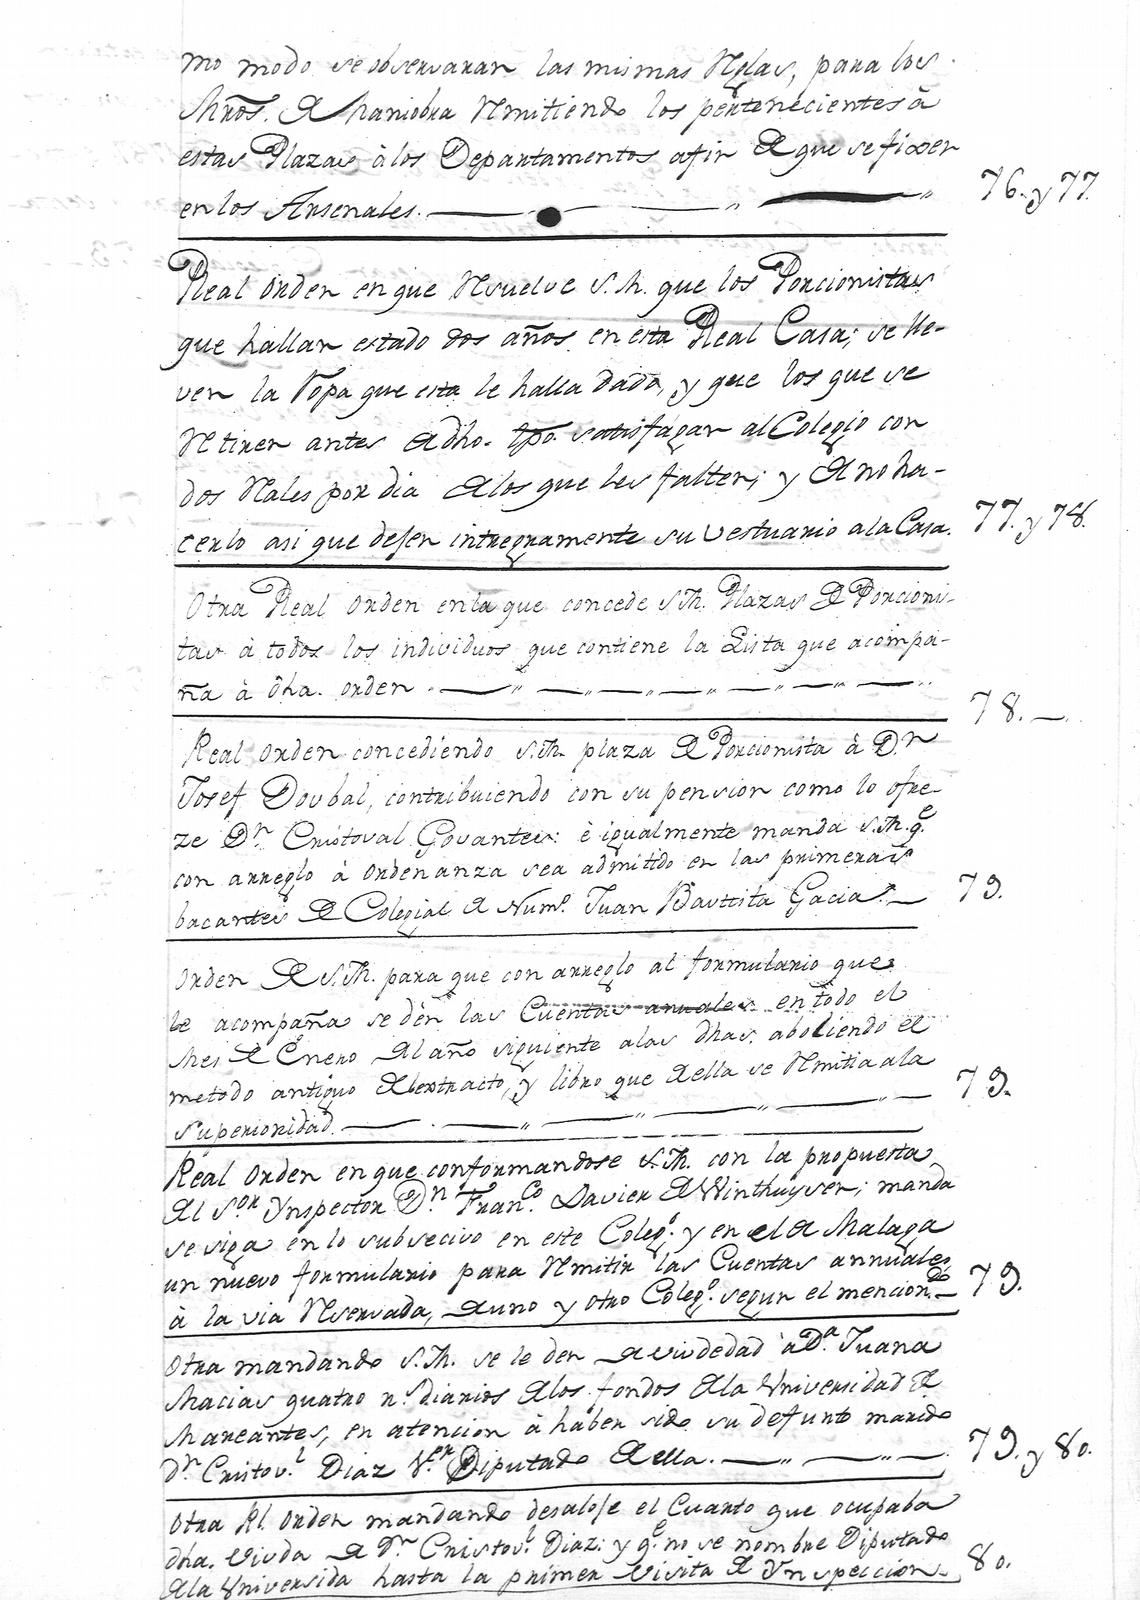 mo modo se observaran las mismas Reglas, para los
Mrõs. de Maniobra Remitiendo los pertenecientes à
estas Plazas à los Departamentos afin de que se fixen
en los Arsenales. 76. y 77.
Real Orden en que Resuelve S. M. que los Porcionistas
que hallan estado dos años en esta Real Casa; se lle-
ven la Ropa que esta le halla dado, y que los que se
Retiren antes de dho. tpo. satisfagan al Colegio con
dos Reales por dia de los que les falten; y de no ha-
cerlo asi que dejen integramente su vestuario a la Casa. 77. y 78.
Otra Real Orden en la que concede S. M. Plazas de Porcionis-
tas à todos los individuos que contiene la Lista que acompa-
ña à dha. orden 78.
Real Orden concediendo S. M. plaza de Porcionista à Dn
Josef Doubal, contribuiendo con su pension como lo ofre-
ze Dn Cristoval Govantes: è igualmente manda S. M. q.e
con arreglo à ordenanza sea admitido en las primeras
bacantes de Colegial de Num.o Juan Bautista Gacia. 79.
Orden de S. M. para que con arreglo al formulario que
le acompaña se dèn las Cuentas annuales en todo el
Mes de Enero del año siguiente a las dhas. aboliendo el
metodo antiguo del extracto, y libro que de ella se Remitia a la
Superioridad. 79.
Real Orden en que conformandose S. M. con la propuesta
del S.or Ynspector Dn. Fran.co Xavier de Winthuysen; manda
se siga en lo subsecivo en este Coleg.o y en el de Malaga
un nuevo formulario para Remitir las Cuentas annuales
à la via Reservada, de uno y otro Coleg.o segun el mencion.do 79.
Otra mandando S. M. se le den de viudedad à D.a Juana
Macias quatro r.s diarios de los fondos de la Universidad de
Mareantes, en atencion à haber sido su defunto marido
Dn Cristov.l Diaz V.er Diputado de ella. 79. y 80.
Otra Rl. Orden mandando desaloje el Cuarto que ocupaba
dha. Viuda de Dn Cristov.l Diaz: y q.e no se nombre Diputado
de la Universida hasta la primer Visita de Ynspeccion. 80.